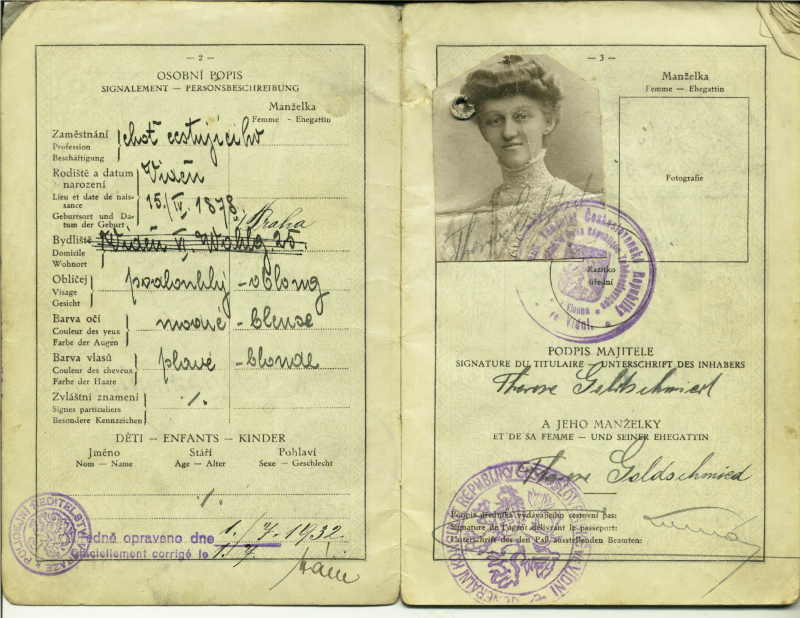 — 2 —
OSOBNÍ POPIS
SIGNALEMENT — PERSONSBESCHREIBUNG
Manželka
Femme — Ehegattin
Zaměstnání
Profession
Beschäftigung
choť cestujícího
Rodiště a datum
narození
Lieu et date de nais-
sance
Geburtsort und Da-
tum der Geburt
Vídeň
15./IV. 1878.
Praha
Bydliště
Domicile
Wohnort
Vídeň
25.
Obličej
Visage
Gesicht
podlouhlý - oblong
Barva očí
Couleur des yeux
Farbe der Augen
modré - bleuse
Barva vlasů
Couleur des cheveux
Farbe der Haare
plavé - blonde
Zvláštní znamení
Signes particuliers
Besondere Kennzeichen
./.
DĚTI — ENFANTS — KINDER
Jméno
Nom — Name
Stáří
Age — Alter
Pohlaví
Sexe — Geschlecht
./.
Úředně opraveno dne
1./7. 1932.
Officiellement corrigé le
1. 7.
— 3 —
Manželka
Femme — Ehegattin
Fotografie
Razítko
úřední
Československé Republiky
ve Vídni.
PODPIS MAJITELE
SIGNATURE DU TITULAIRE — UNTERSCHRIFT DES INHABERS
Therese Goldschmied
A JEHO MANŽELKY
ET DE SA FEMME — UND SEINER EHEGATTIN
Therese Goldschmied
Podpis úředníka vydávajícího cestovní pas:
Signature de l'agent délivrant le passeport:
Unterschrift des den Paß ausstellenden Beamten: